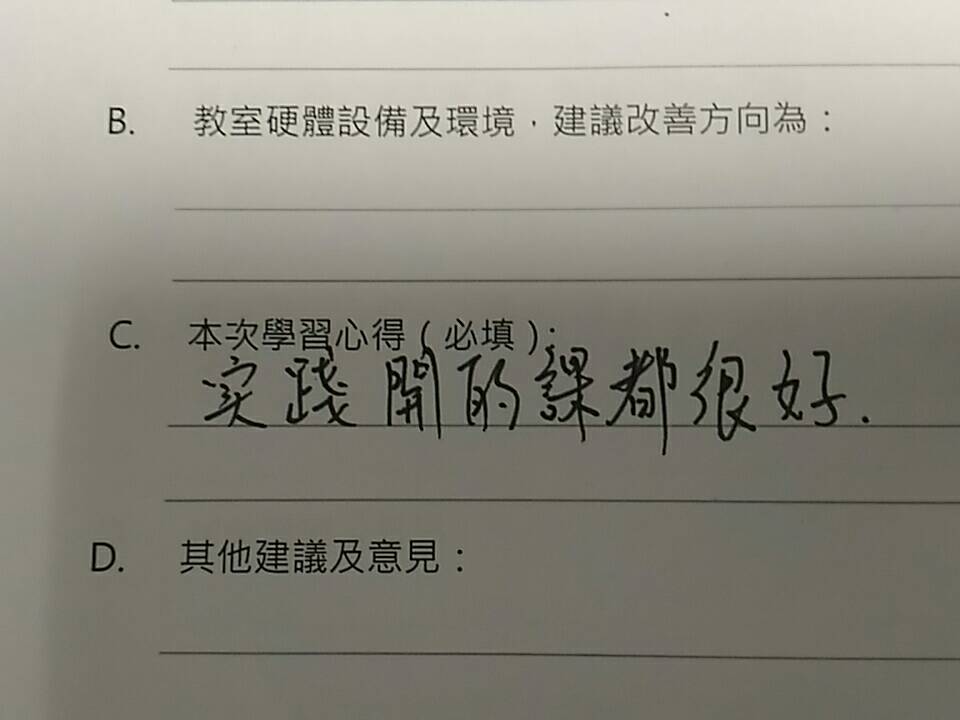 B. 教室硬體設備及環境，建議改善方向為：
C. 本次學習心得（必填）：
实踐開的課都很好.
D. 其他建議及意見：